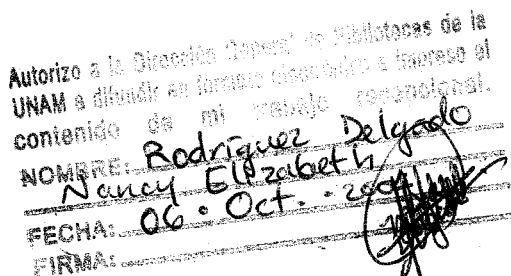 Autorizo a la Dirección General de Bibliotecas de la
UNAM a difundir en formato electrónico e impreso el
contenido de mi trabajo recepcional.
NOMBRE: Rodríguez Delgado
Nancy Elizabeth
FECHA: 06 • Oct. •
FIRMA: